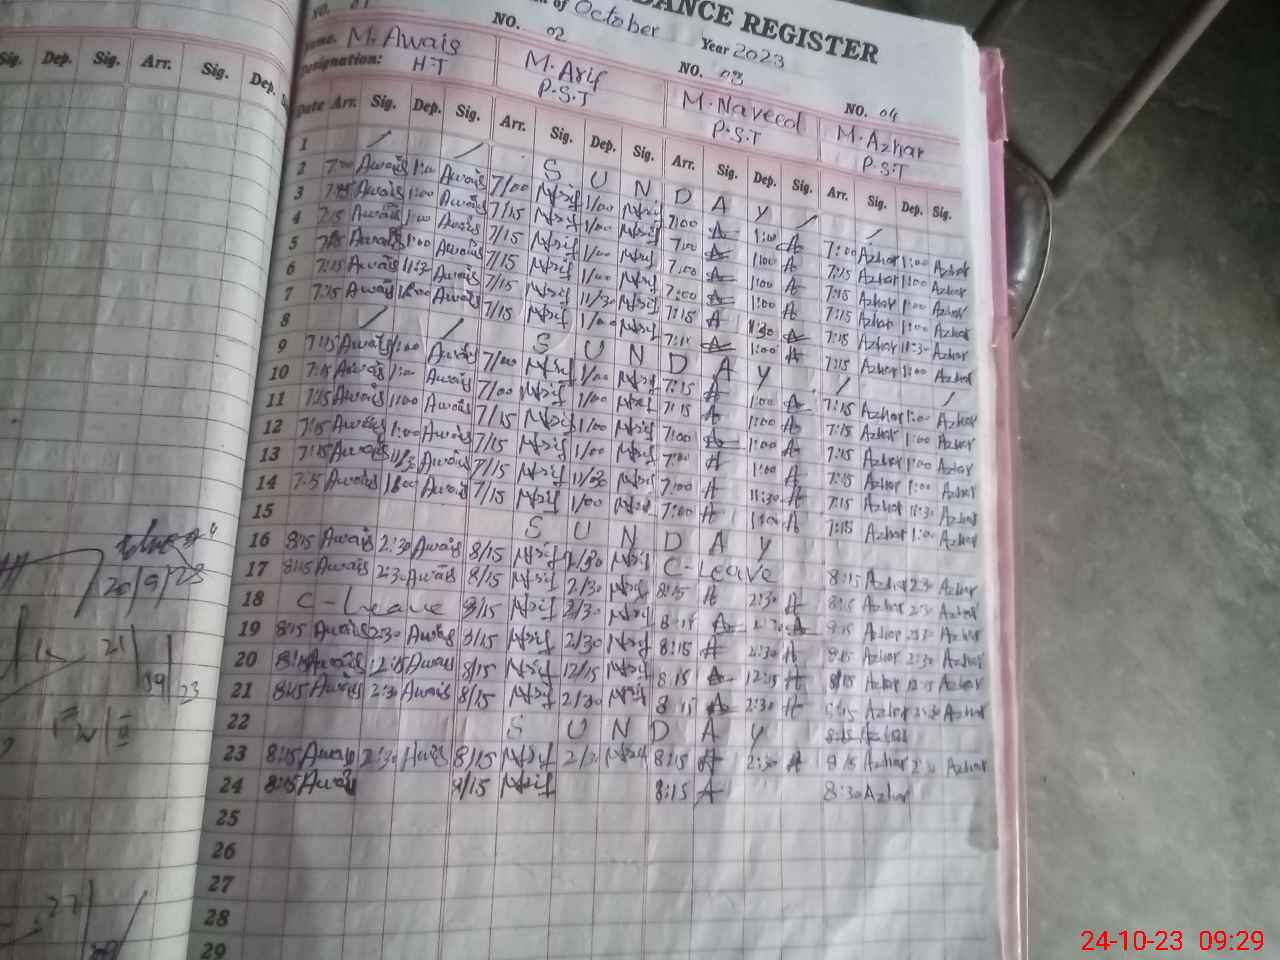 DANCE REGISTER
of October Year 2023
NO. 01 NO. 02 NO. 03 NO. 04
Name. M. Awais M. Arif M. Naveed M. Azhar
Designation: H.T P.S.T P.S.T P.S.T
Sig. Dep. Sig. Arr. Sig. Dep.
Date Arr. Sig. Dep. Sig. Arr. Sig. Dep. Sig. Arr. Sig. Dep. Sig. Arr. Sig. Dep. Sig.
1 S U N D A Y
2 7:00 Awais 1:00 Awais 7/00 Arif 1/00 Arif 7:00 A 1:00 A 7:00 Azhar 1:00 Azhar
3 7:15 Awais 1:00 Awais 7/15 Arif 1/00 Arif 7:00 A 1:00 A 7:15 Azhar 1:00 Azhar
4 7:15 Awais 1:00 Awais 7/15 Arif 1/00 Arif 7:00 A 1:00 A 7:15 Azhar 1:00 Azhar
5 7:15 Awais 1:00 Awais 7/15 Arif 1/00 Arif 7:00 A 1:00 A 7:15 Azhar 1:00 Azhar
6 7:15 Awais 11:30 Awais 7/15 Arif 11/30 Arif 7:15 A 11:30 A 7:15 Azhar 11:30 Azhar
7 7:15 Awais Awais 7/15 Arif 1/00 Arif A 1:00 A 7:15 Azhar 1:00 Azhar
8 S U N D A Y
9 7:15 Awais 1:00 Awais 7/00 Arif 1/00 Arif 7:15 A 1:00 A 7:15 Azhar 1:00 Azhar
10 7:15 Awais 1:00 Awais 7/00 Arif 1/00 Arif 7:15 A 1:00 A 7:15 Azhar 1:00 Azhar
11 7:15 Awais 1:00 Awais 7/15 Arif 1/00 Arif 7:00 A 1:00 A 7:15 Azhar 1:00 Azhar
12 7:15 Awais 1:00 Awais 7/15 Arif 1/00 Arif 7:00 A 1:00 A 7:15 Azhar 1:00 Azhar
13 7:15 Awais Awais 7/15 Arif 11/30 Arif 7:00 A 11:30 A 7:15 Azhar 11:30 Azhar
14 Awais Awais 7/15 Arif 1/00 Arif 7:00 A 1:00 A 7:15 Azhar 1:00 Azhar
15 S U N D A Y
16 8:15 Awais 2:30 Awais 8/15 Arif 2/30 Arif C-Leave 8:15 Azhar 2:30 Azhar
17 8:15 Awais 2:30 Awais 8/15 Arif 2/30 Arif 8:15 A 2:30 A 8:15 Azhar 2:30 Azhar
18 C-Leave 8/15 Arif 2/30 Arif 8:15 A A 8:15 Azhar 2:30 Azhar
19 8:15 Awais 2:30 Awais 8/15 Arif 2/30 Arif 8:15 A 2:30 A 8:15 Azhar 2:30 Azhar
20 8:15 Awais 12:15 Awais 8/15 Arif 12/15 Arif 8:15 A 12:15 A 8:15 Azhar 12:15 Azhar
21 8:15 Awais 2:30 Awais 8/15 Arif 2/30 Arif 8:15 A 2:30 A 8:15 Azhar 2:30 Azhar
22 S U N D A Y
23 8:15 Awais 2:30 Awais 8/15 Arif Arif 8:15 A 2:30 A 8:15 Azhar 2:30 Azhar
24 8:15 Awais 8/15 Arif 8:15 A 8:30 Azhar
25
26
27
28
29
20/9/23
21
09
23
24-10-23 09:29